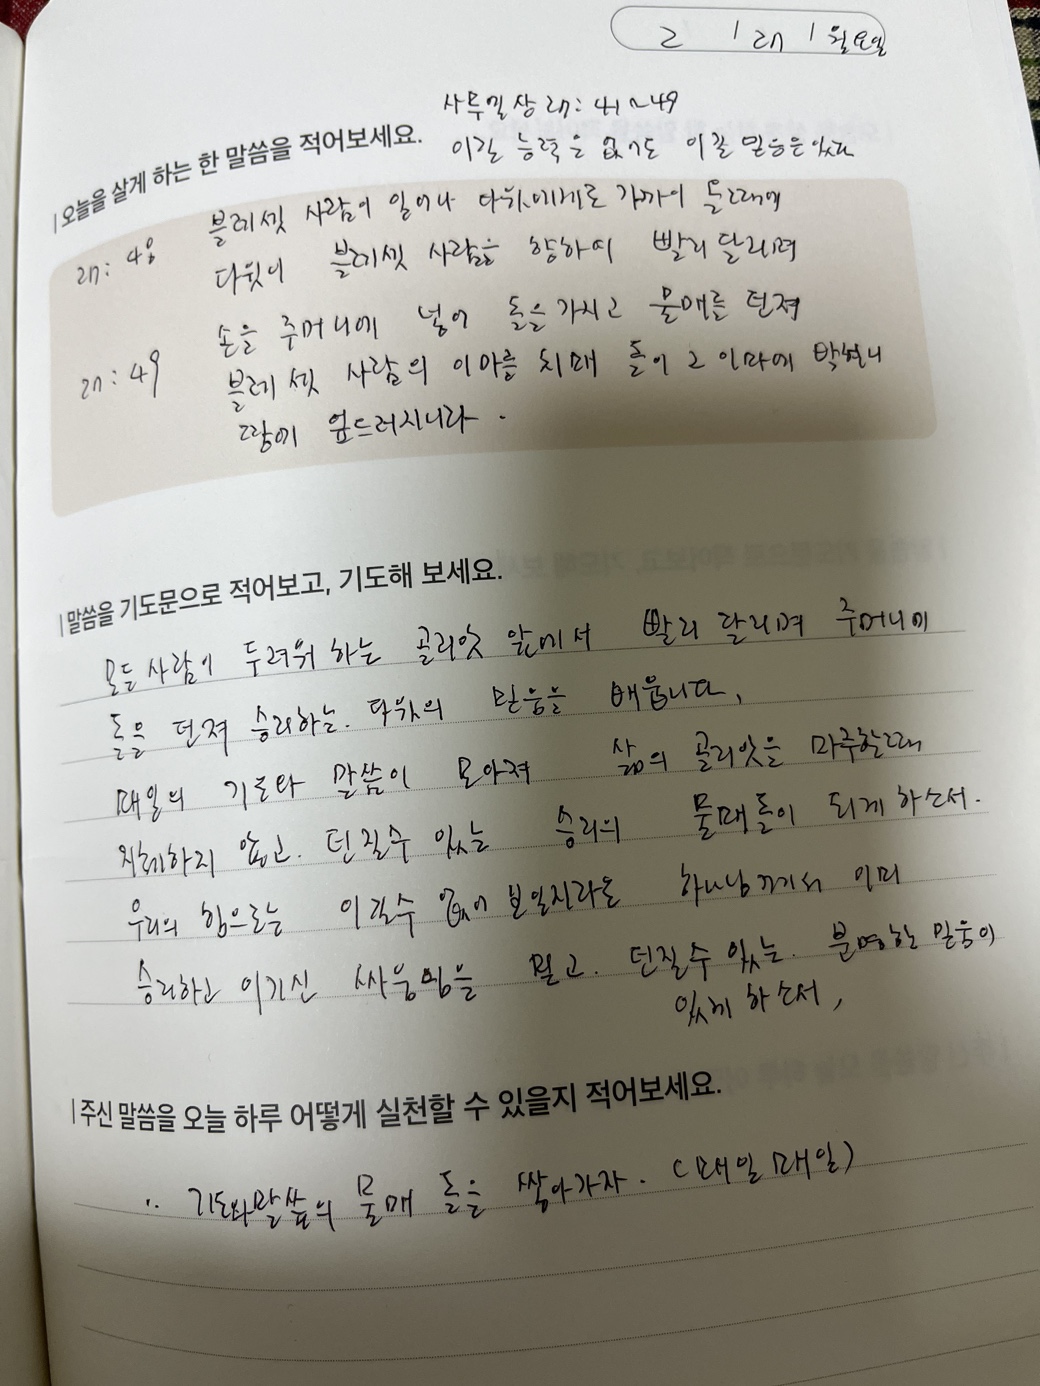 2 1 27 1 월요일
사무엘상 17: 41~49
이길 능력은 없어도 이길 믿음은 있다
| 오늘을 살게 하는 한 말씀을 적어보세요.
17: 48 블레셋 사람이 일어나 다윗에게로 가까이 올때에
다윗이 블레셋 사람을 향하여 빨리 달리며
손을 주머니에 넣어 돌을 가지고 물매를 던져
17: 49 블레셋 사람의 이마를 치매 돌이 그 이마에 박히니
땅에 엎드러지니라.
| 말씀을 기도문으로 적어보고, 기도해 보세요.
모든 사람이 두려워 하는 골리앗 앞에서 빨리 달리며 주머니에
돌을 던져 승리하는. 다윗의 믿음을 배웁니다,
매일의 기도와 말씀이 모아져 삶의 골리앗을 마주할때
지체하지 않고. 던질수 있는 승리의 물매돌이 되게 하소서.
우리의 힘으로는 이길수 없어 보일지라도 하나님께서 이미
승리하고 이기신 싸움임을 믿고. 던질수 있는. 분명한 믿음이
있게 하소서,
| 주신 말씀을 오늘 하루 어떻게 실천할 수 있을지 적어보세요.
∵ 기도와말씀의 물매 돌을 쌓아가자. (매일매일)